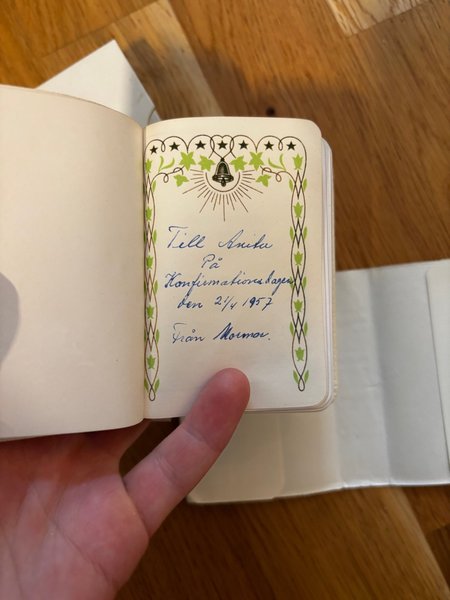 Till Anita
På
Konfirmationsdagen
den 21/4 1957
Från Mormor.